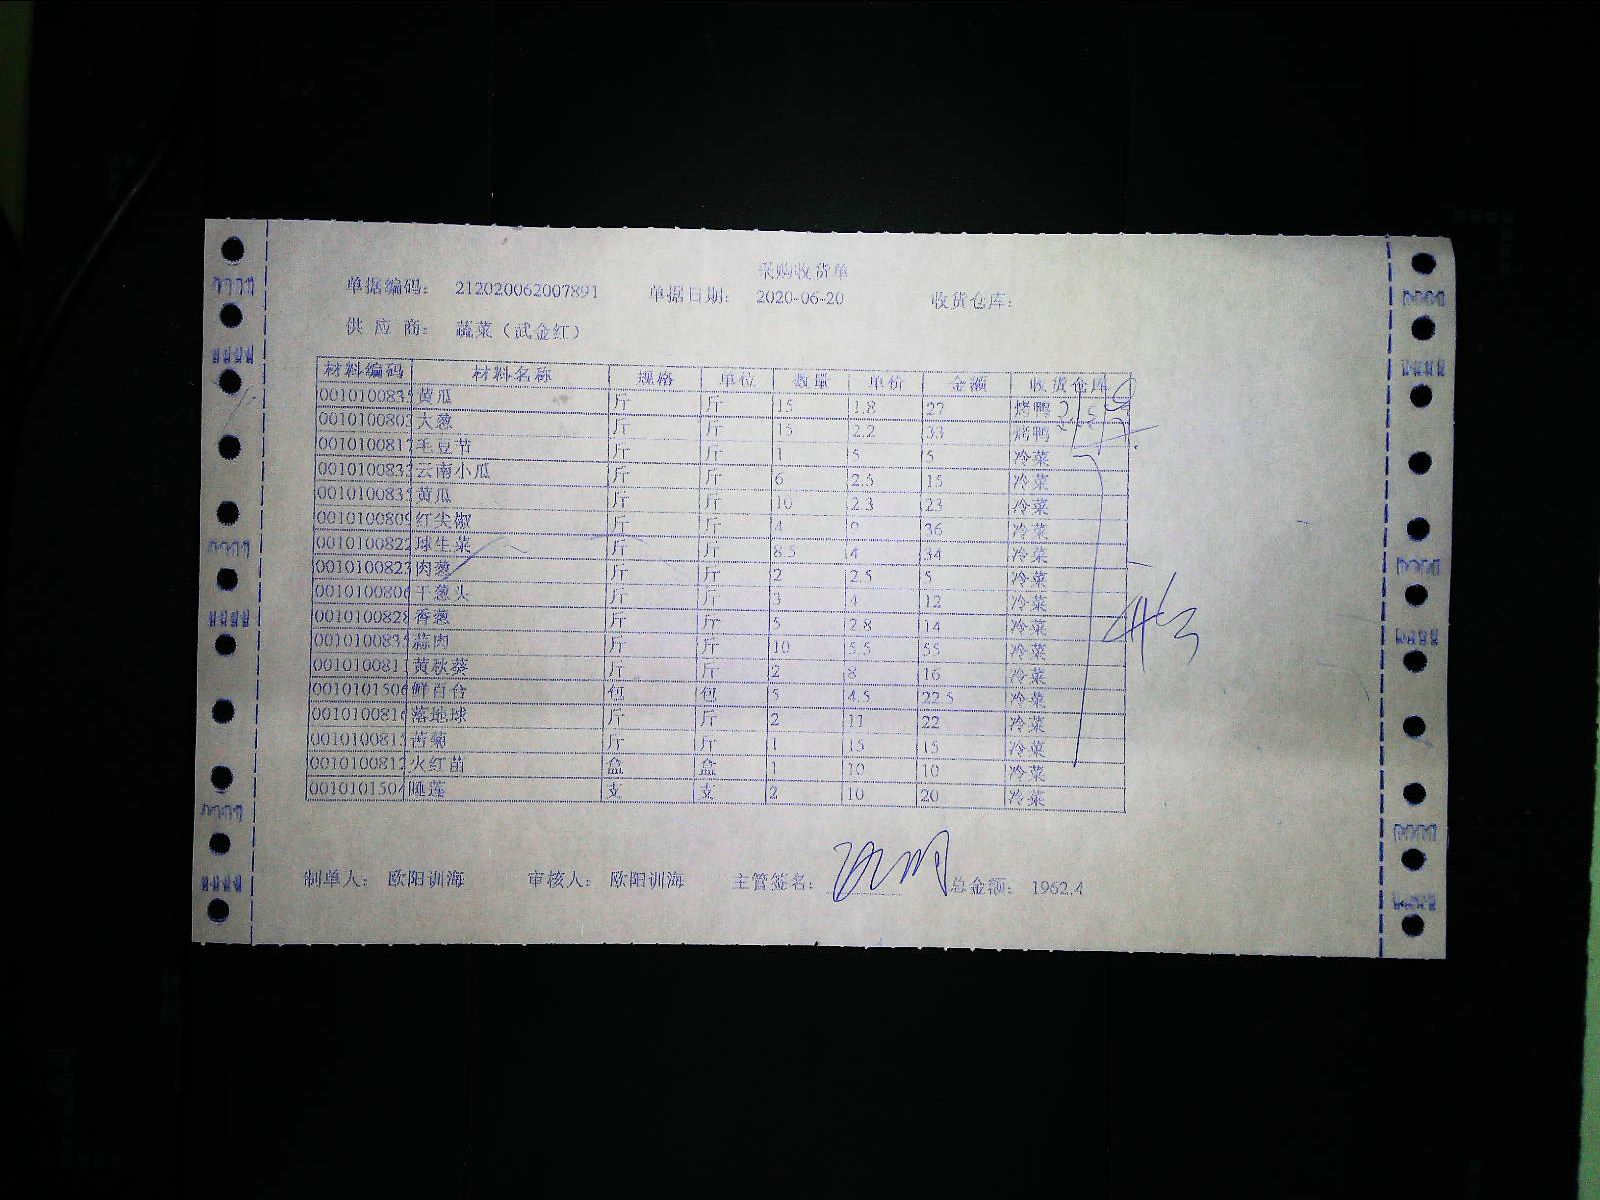 采购收货单
单据编码： 212020062007891 单据日期： 2020-06-20 收货仓库：
供 应 商： 蔬菜（武金红）
材料编码 材料名称 规格 单位 数量 单价 金额 收货仓库
001010083 黄瓜 斤 斤 15 1.8 27 烤鸭
001010080 大葱 斤 斤 15 2.2 33 烤鸭
001010081 毛豆节 斤 斤 1 5 5 冷菜
001010083 云南小瓜 斤 斤 6 2.5 15 冷菜
001010083 黄瓜 斤 斤 10 2.3 23 冷菜
001010080 红尖椒 斤 斤 4 9 36 冷菜
001010082 球生菜 斤 斤 8.5 4 34 冷菜
001010082 肉葱 斤 斤 2 2.5 5 冷菜
001010080 干葱头 斤 斤 3 4 12 冷菜
001010082 香葱 斤 斤 5 2.8 14 冷菜
001010083 蒜肉 斤 斤 10 5.5 55 冷菜
001010081 黄秋葵 斤 斤 2 8 16 冷菜
001010150 鲜百合 包 包 5 4.5 22.5 冷菜
001010081 落地球 斤 斤 2 11 22 冷菜
001010081 苦菊 斤 斤 1 15 15 冷菜
001010081 火红苗 盒 盒 1 10 10 冷菜
001010150 睡莲 支 支 2 10 20 冷菜
制单人： 欧阳训海 审核人： 欧阳训海 主管签名： 总金额： 1962.4